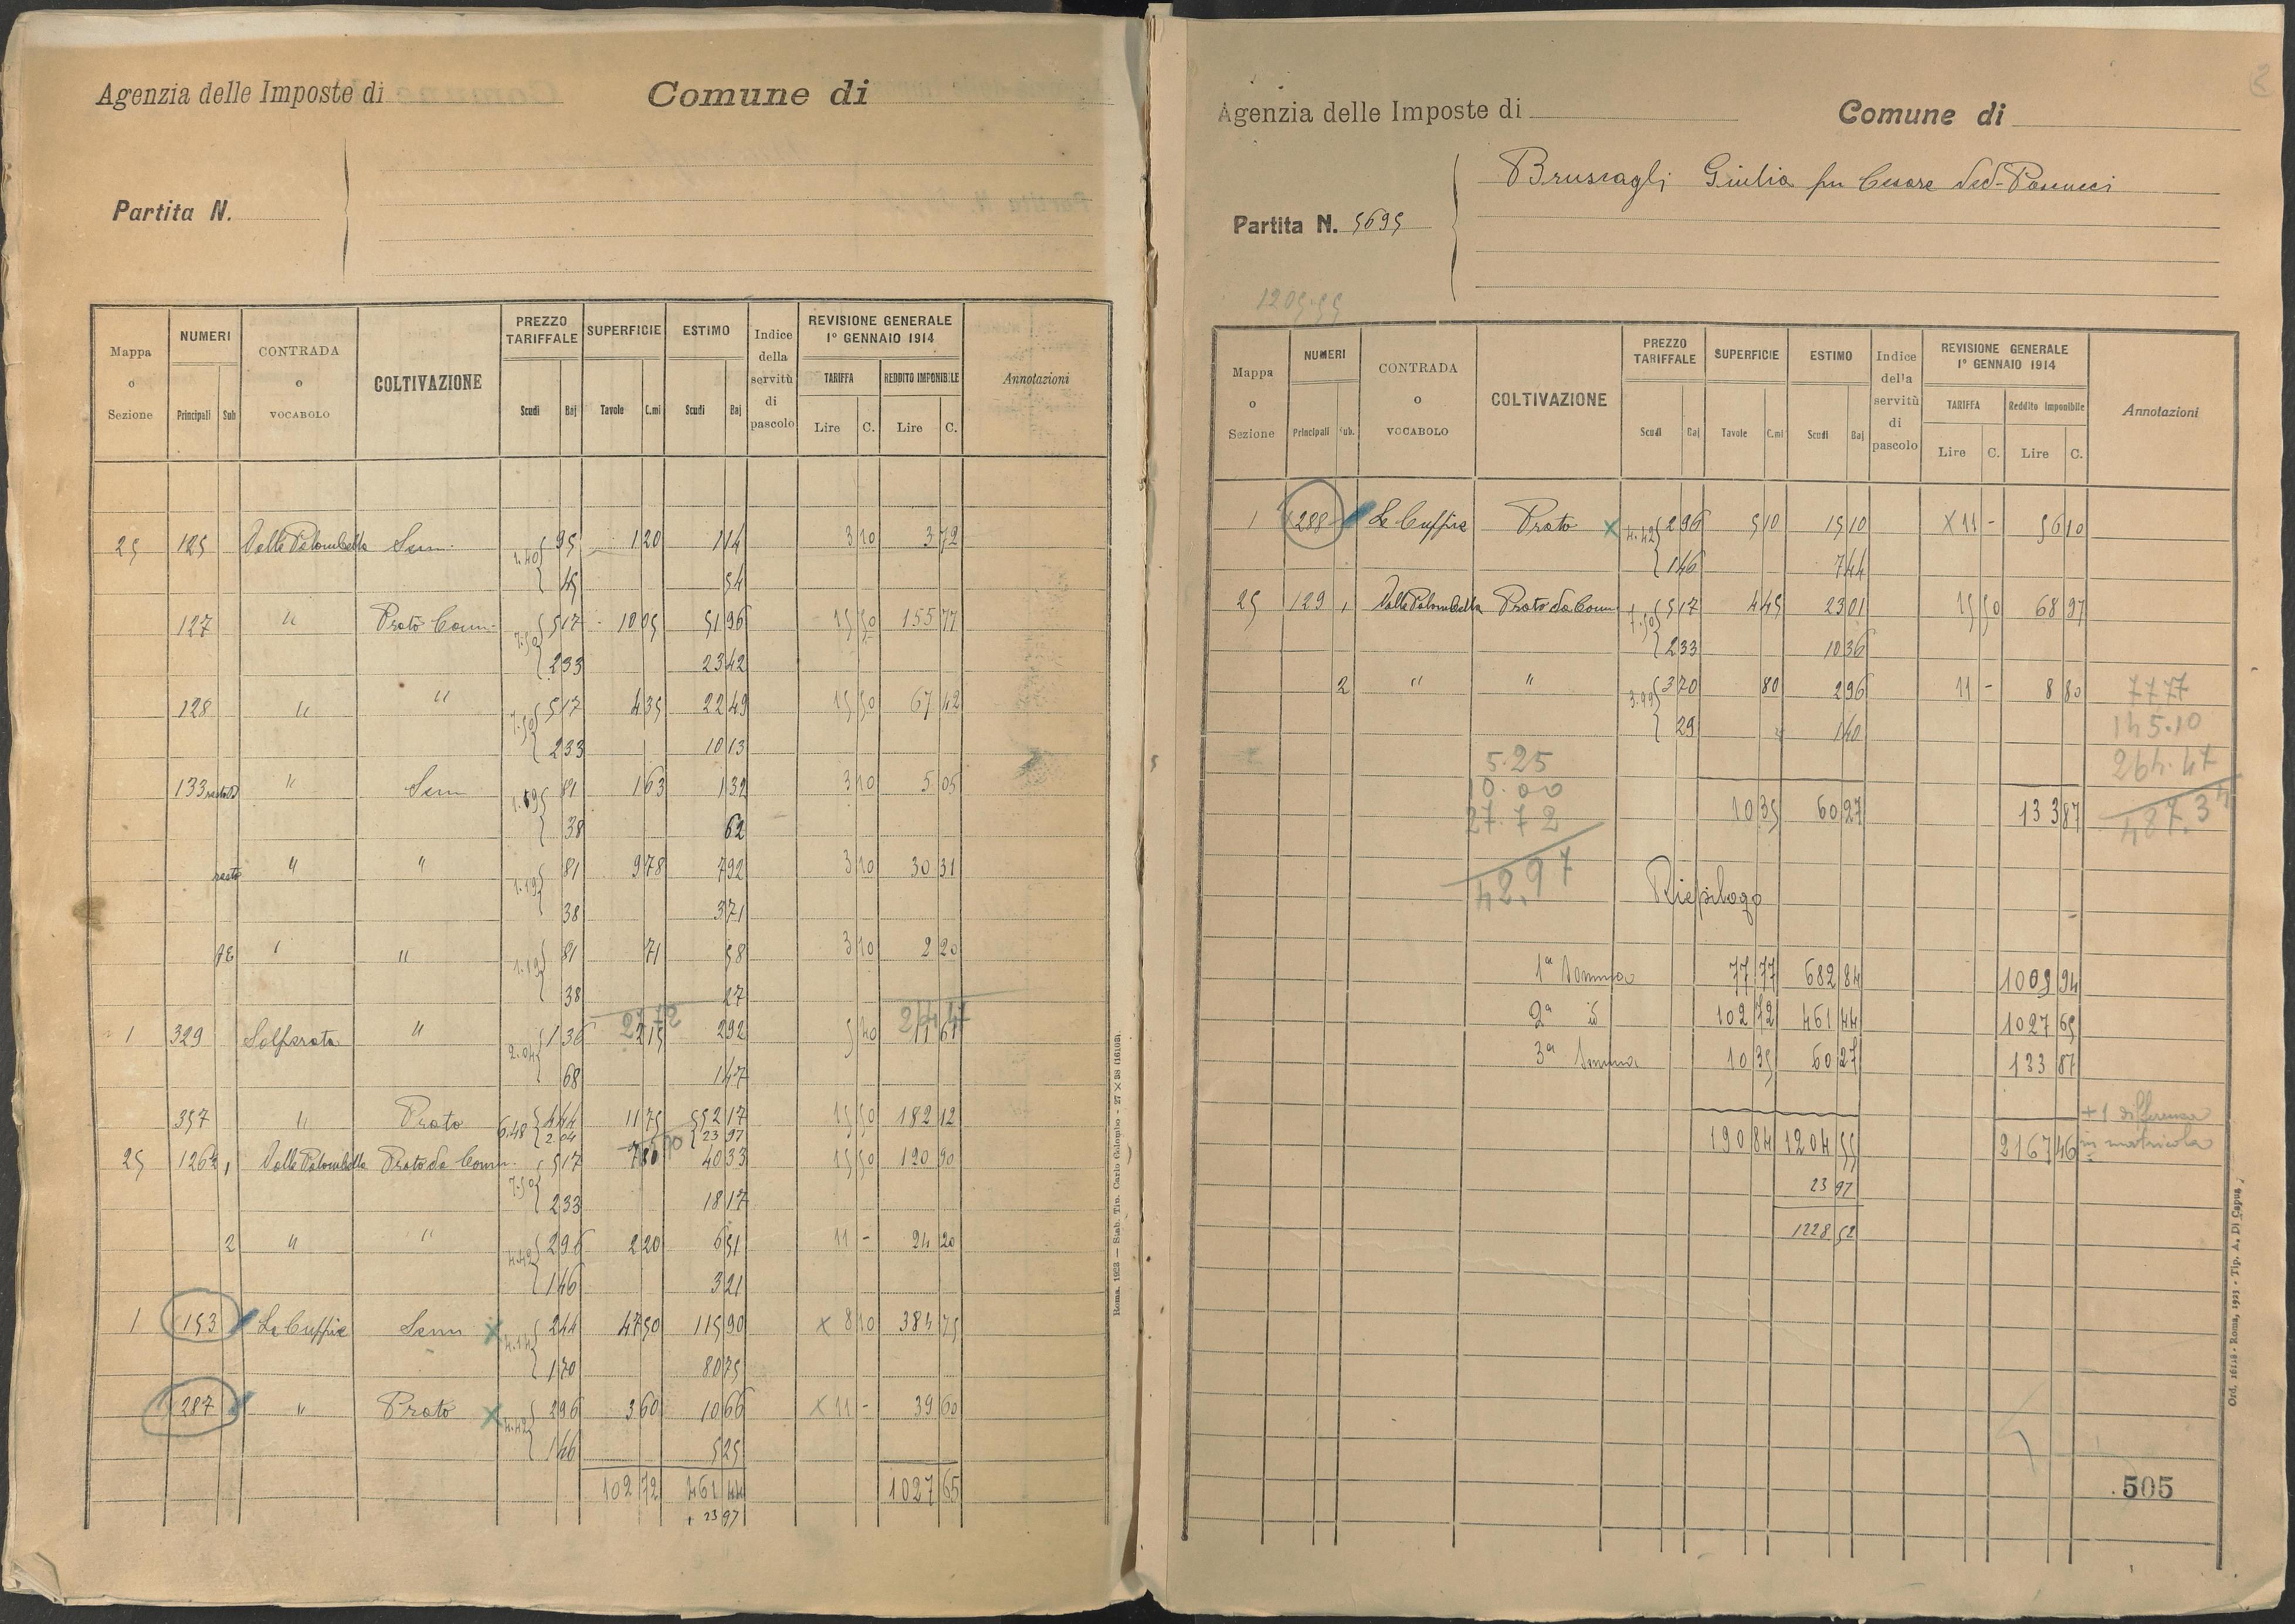 Agenzia delle Imposte di Comune di
Partita N.
Mappa o Sezione NUMERI Principali Sub CONTRADA o VOCABOLO COLTIVAZIONE PREZZO TARIFFALE Scudi Baj SUPERFICIE Tavole C.mi ESTIMO Scudi Baj Indice della servitù di pascolo REVISIONE GENERALE 1° GENNAIO 1914 TARIFFA Lire C. REDDITO IMPONIBILE Lire C. Annotazioni
25 125 Valle Palombella Sem. 1.40 95 1 20 1 14 3 10 3 72
45 54
127 " Prato Com. 7.50 5 17 10 05 51 96 15 50 155 77
2 33 23 42
128 " " 7.50 5 17 4 35 22 49 15 50 67 42
2 33 10 13
133 " Sem 1.19 81 1 63 1 32 3 10 5 05
38 62
resto " " 1.19 81 9 78 7 92 3 10 30 31
38 3 71
" " 1.19 81 71 58 3 10 2 20
38 27
27 72 264 47
1 329 Solferata " 2.04 1 36 2 15 2 92 5 40 11 61
68 1 47
357 " Prato 6.48 4 44 11 75 52 17 15 50 182 12
2.04 23 97
25 126½ 1 Valle Palombella Prato da Com. 7.50 5 17 7 80 40 33 15 50 120 90
2 33 18 17
2 " " 4.42 2 96 2 20 6 51 11 - 24 20
1 46 3 21
1 153 Le Cuffie Sem X 4.14 2 44 47 50 115 90 X 8 10 384 75
1 70 80 75
287 " Prato X 4.42 2 96 3 60 10 66 X 11 - 39 60
1 46 5 25
102 72 461 44 1027 65
23 97
Roma, 1923 — Stab. Tip. Carlo Colombo - 27 × 38 (16103).
2
Agenzia delle Imposte di Comune di
Bruscagli Giulia fu Cesare Ved. Panucci
Partita N. 5695
1205.55
Mappa o Sezione NUMERI Principali Sub. CONTRADA o VOCABOLO COLTIVAZIONE PREZZO TARIFFALE Scudi Baj SUPERFICIE Tavole C.mi ESTIMO Scudi Baj Indice della servitù di pascolo REVISIONE GENERALE 1° GENNAIO 1914 TARIFFA Lire C. Reddito imponibile Lire C. Annotazioni
1 288 Le Cuffie Prato X 4.42 2 96 5 10 15 10 X 11 - 56 10
1 46 7 44
25 129 1 Valle Palombella Prato da Com 7.50 5 17 4 45 23 01 15 50 68 97
2 33 10 36
2 " " 3.99 3 70 80 2 96 11 - 8 80 77.77
29 1 40 145.10
5.25 264.47
10.00
27.72 10 35 60 27 133 87 487.34
42.97
Riepilogo
1ª Somma 77 77 682 84 1005 94
2ª id 102 72 461 44 1027 65
3ª Somma 10 35 60 27 133 87
+1 differenza
190 84 1204 55 2167 46 in matricola
23 97
1228 52
505
Ord. 16118 - Roma, 1923 - Tip. A. Di Capua